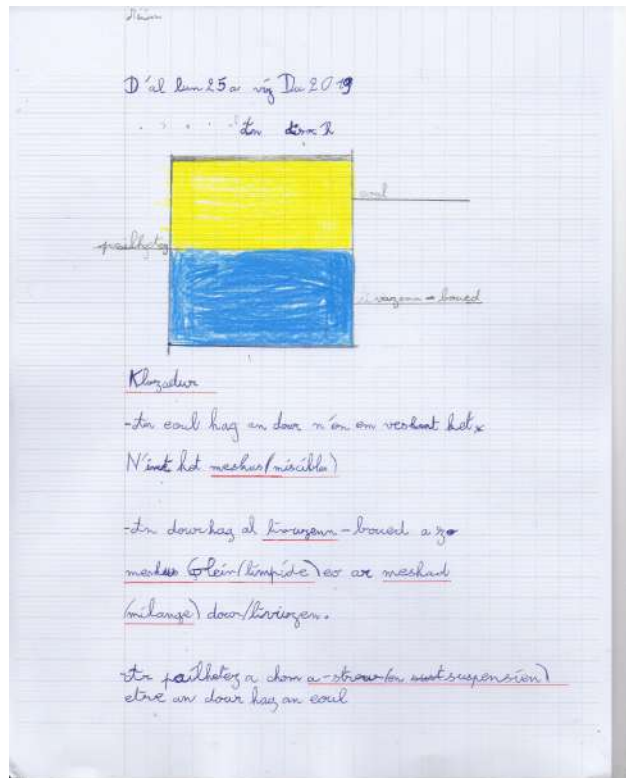 D'al lun 25 a viz Du 2019
An dour
eoul
pailhetez
livuzenn-boued
Klozadur
-An eoul hag an dour n'en em veskont ket
N'int ket meskus (miscibles)
-An dour hag al livuzenn-boued a zo
meskus Glein (limpide) eo ar meskad
(mélange) dour/livuzen.
Ar pailhetez a chom a-strew (en suspension)
etre an dour hag an eoul